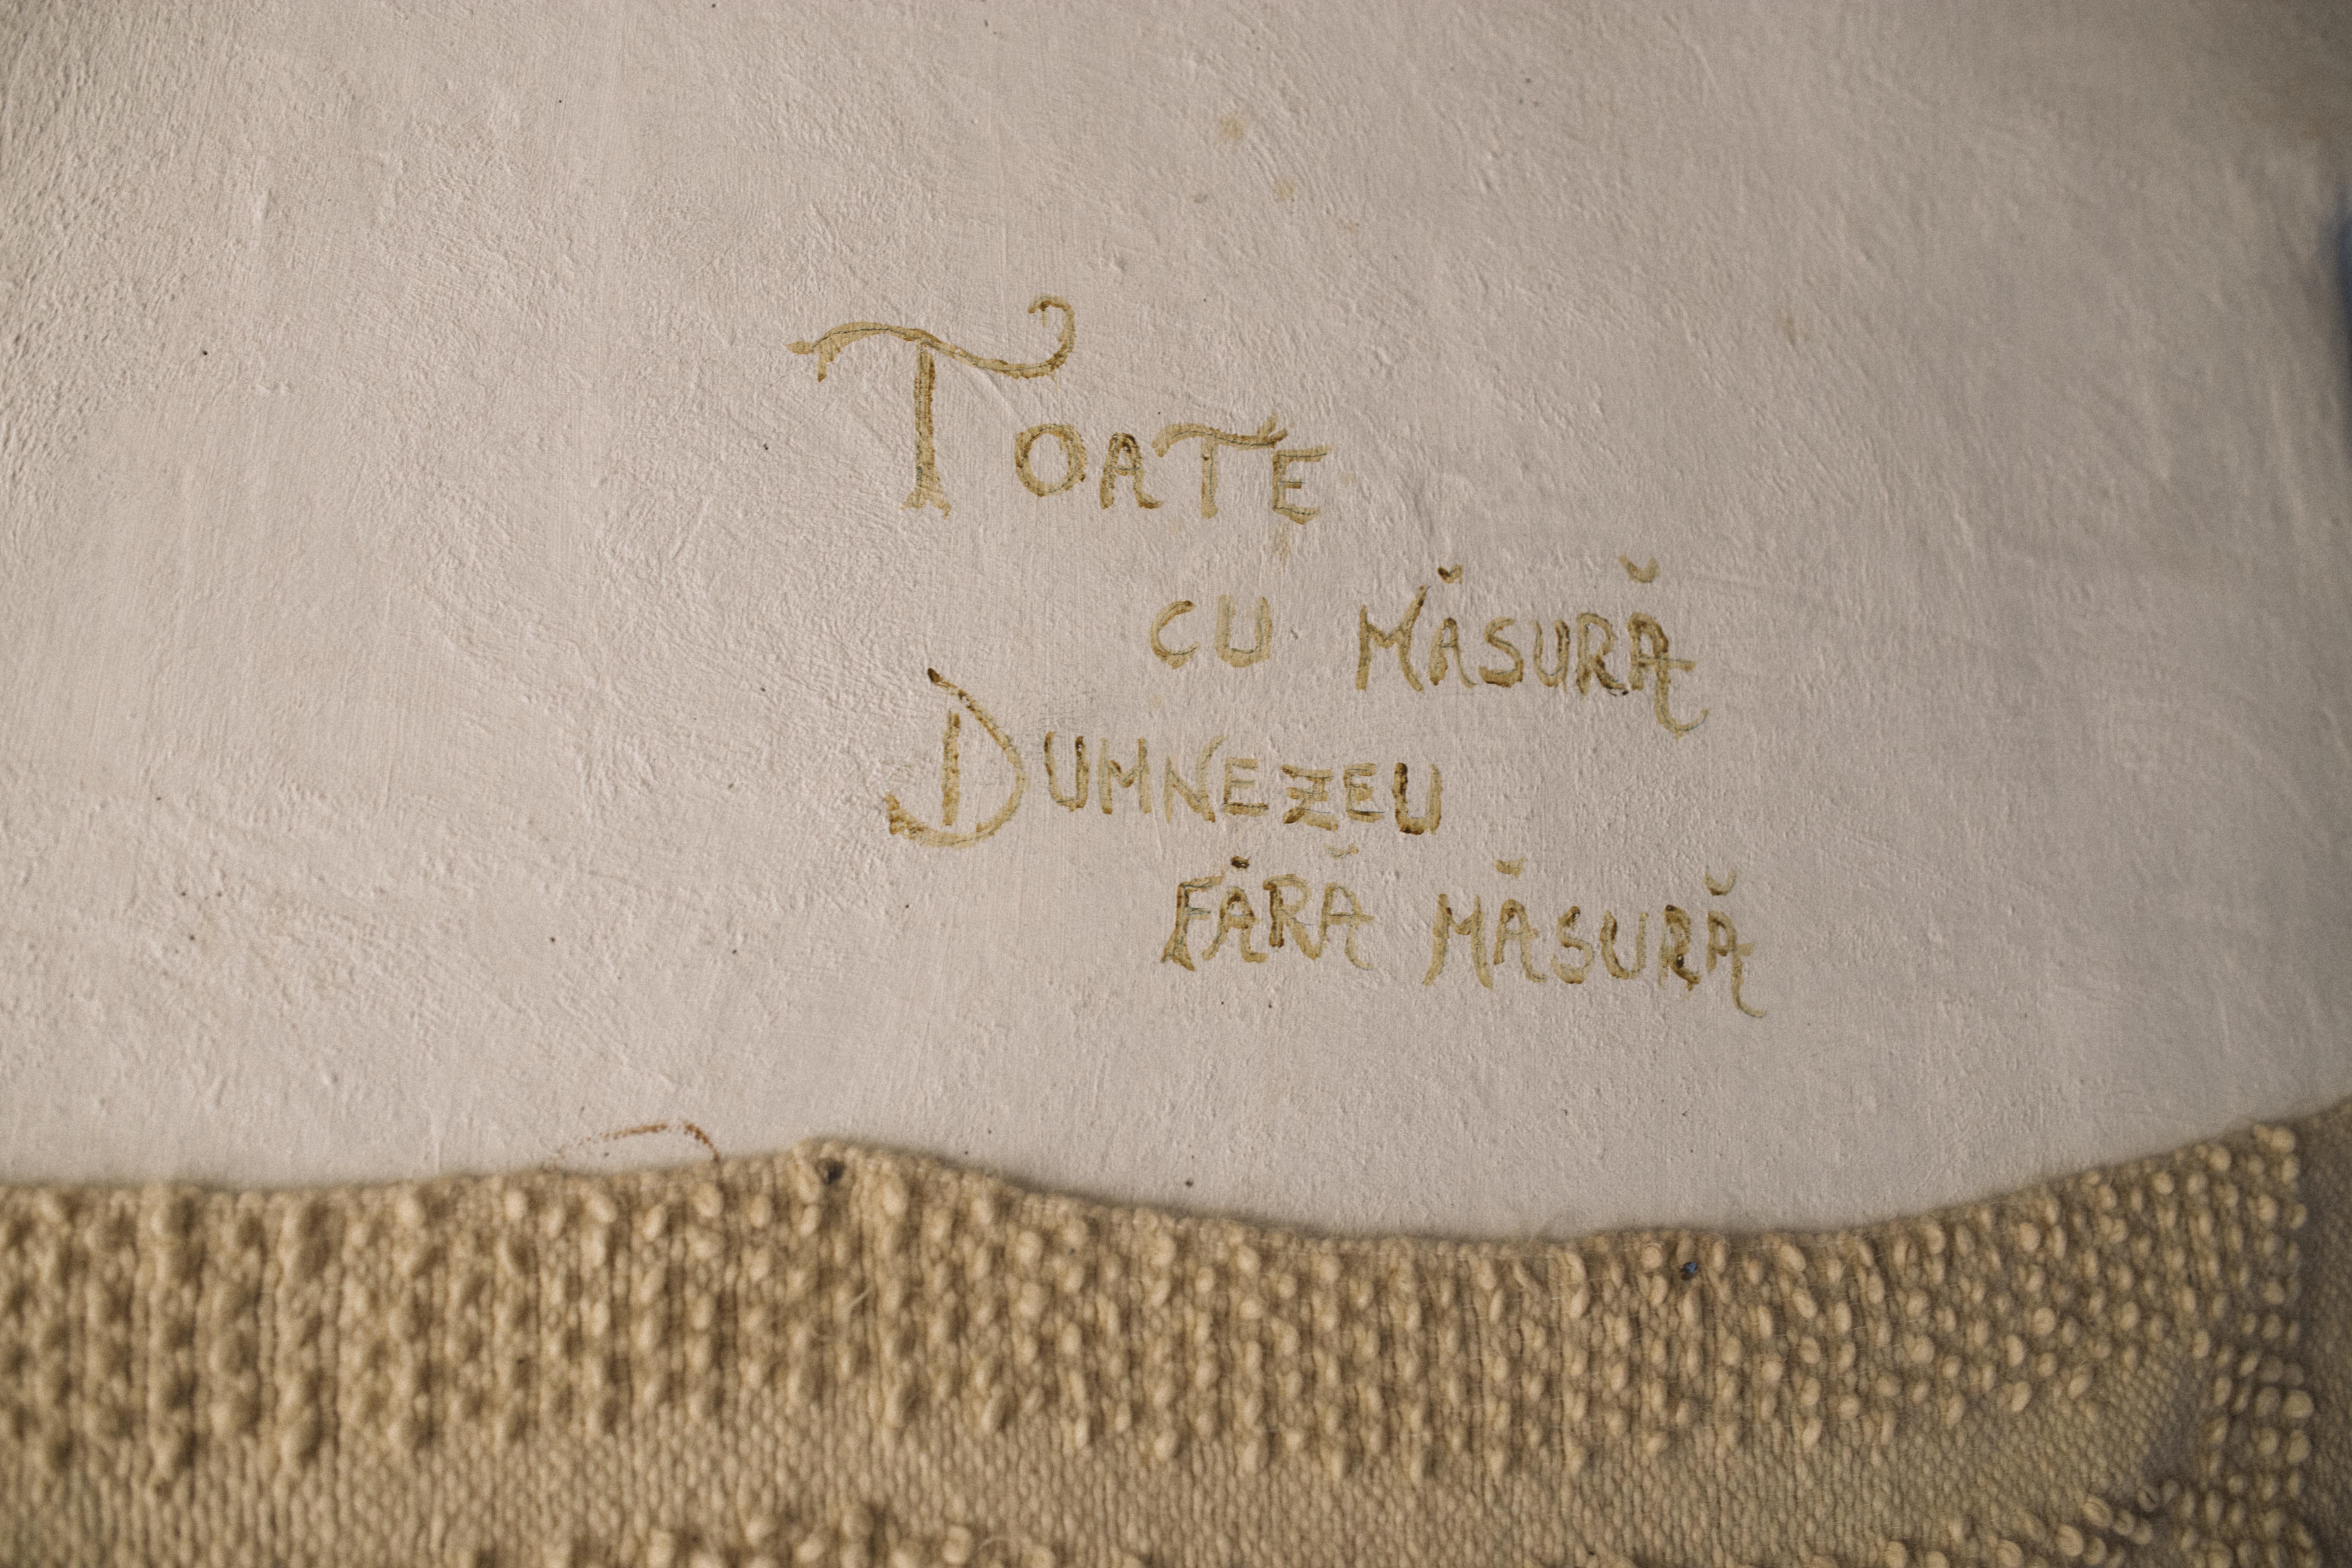 TOATE
CU MĂSURĂ
DUMNEZEU
FĂRĂ MĂSURĂ